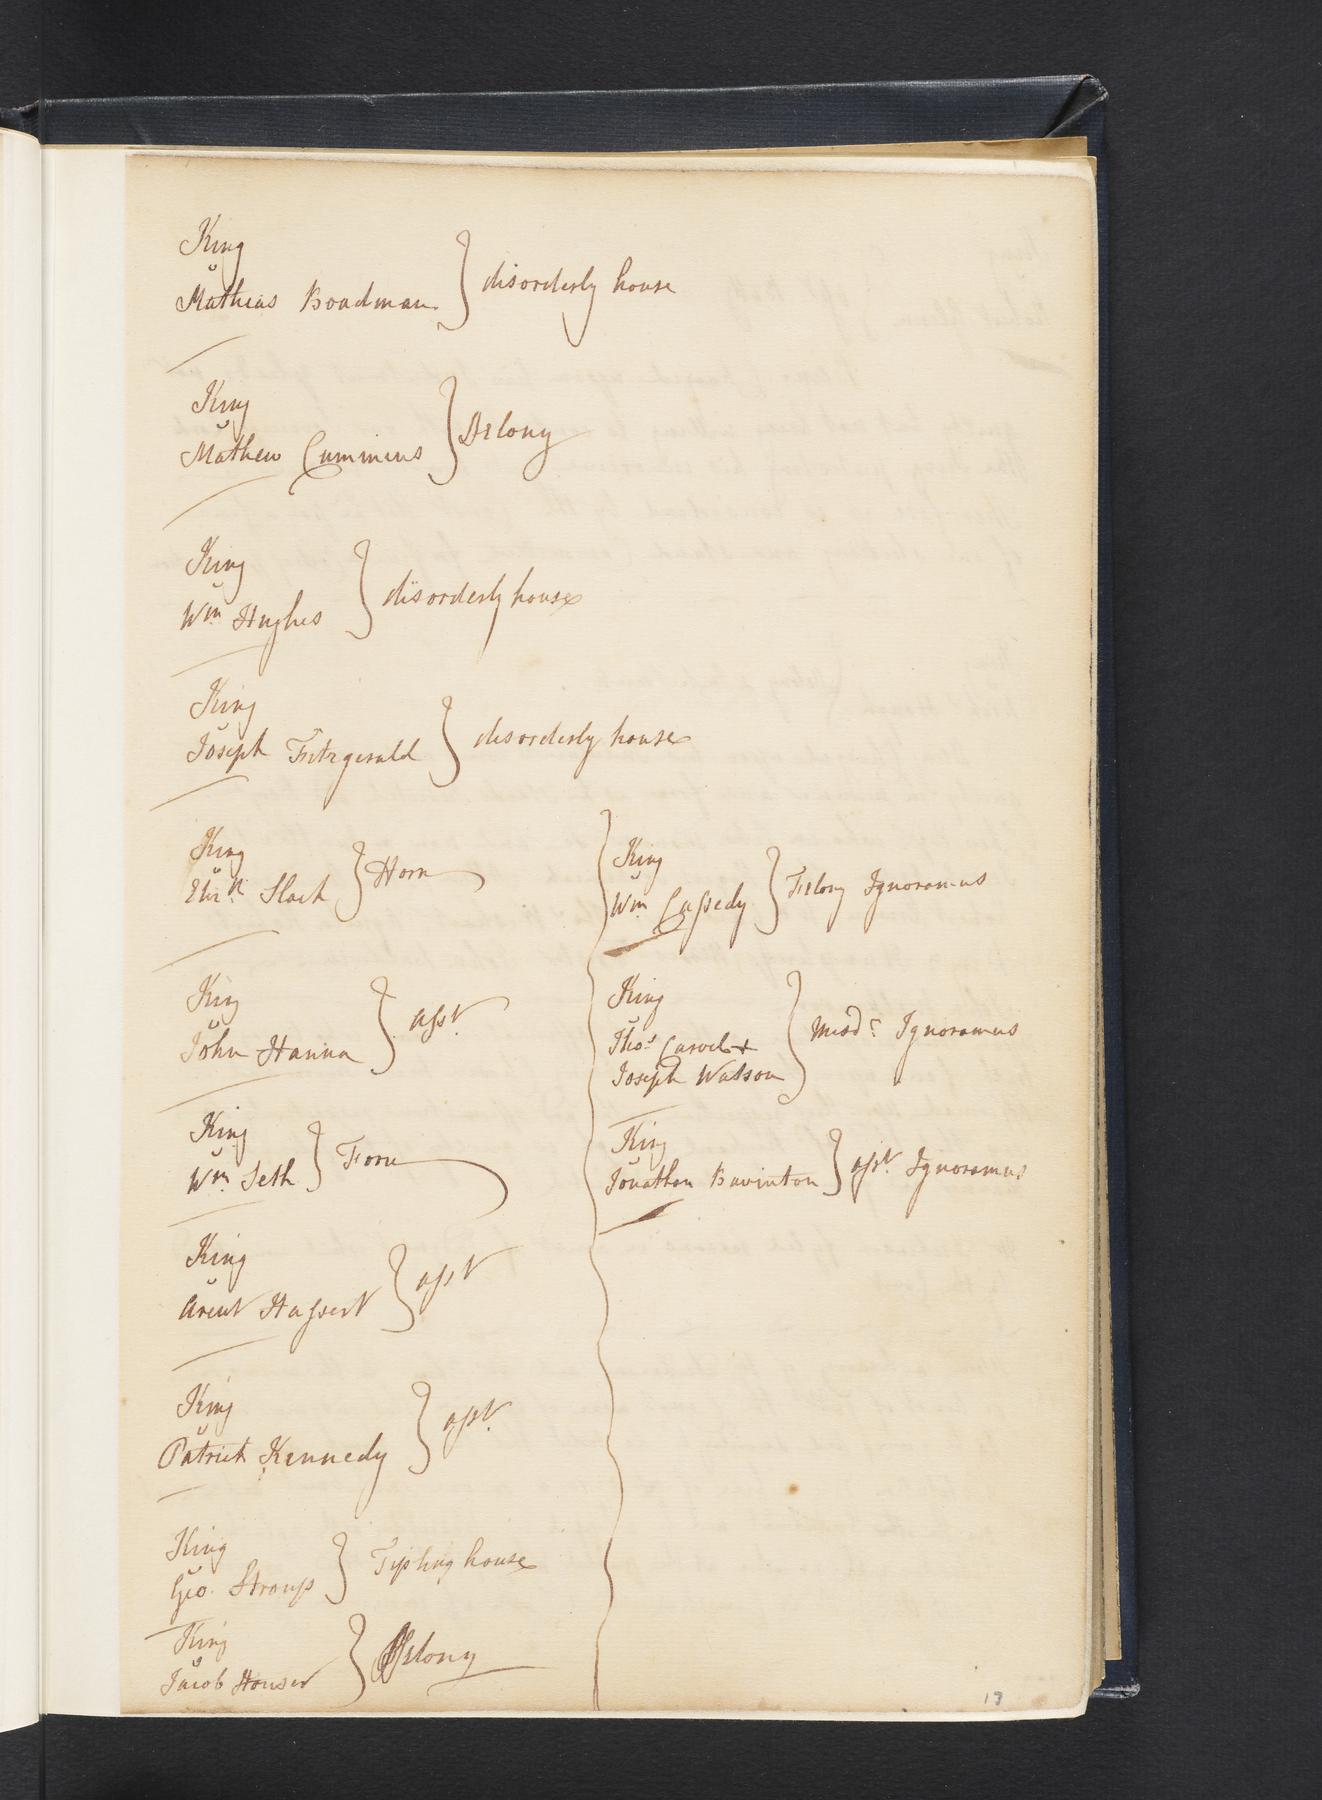 King
v
Mathias Boadman } disorderly house
King
v
Mathew Cummins } Felony
King
v
Wm. Hughes } disorderly house
King
v
Joseph Fitzgerald } disorderly house
King
v
Eliz.h Slack } Horn
King
v
John Hanna } asst.
King
v
Wm. Seth } Forn
King
v
Arent Hassert } asst
King
v
Patrick Kennedy } asst.
King
v
Geo. Stroup } Tipling house
King
v
Jacob Houser } Felony
King
v
Wm Cassedy } Felony Ignoramus
King
v
Thos. &
Joseph Watson } Misdr. Ignoramus
King
v
Jonathan Bavinton } asst. Ignoramus
19